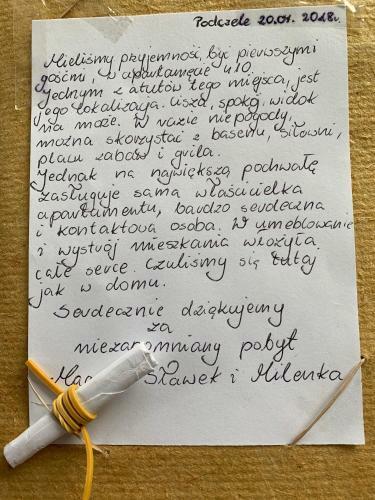 Podczele 20.01. 2018r.
Mieliśmy przyjemność, być pierwszymi
gośćmi, w apartamęcie 410.
Jednym z atutów tego miejsca, jest
jego lokalizacja. Cisza, spokój, widok
na może. W razie niepogody,
można skorzystać z basenu, siłowni,
placu zabaw i grila.
Jednak na największą pochwałę
zasługuje sama właścicielka
apartamentu, bardzo serdeczna
i kontaktowa osoba. W umeblowanie
i wystrój mieszkania włożyła
całe serce. Czuliśmy się tutaj
jak w domu.
Serdecznie dziękujemy
za
niezapomniany pobyt
Sławek i Milenka